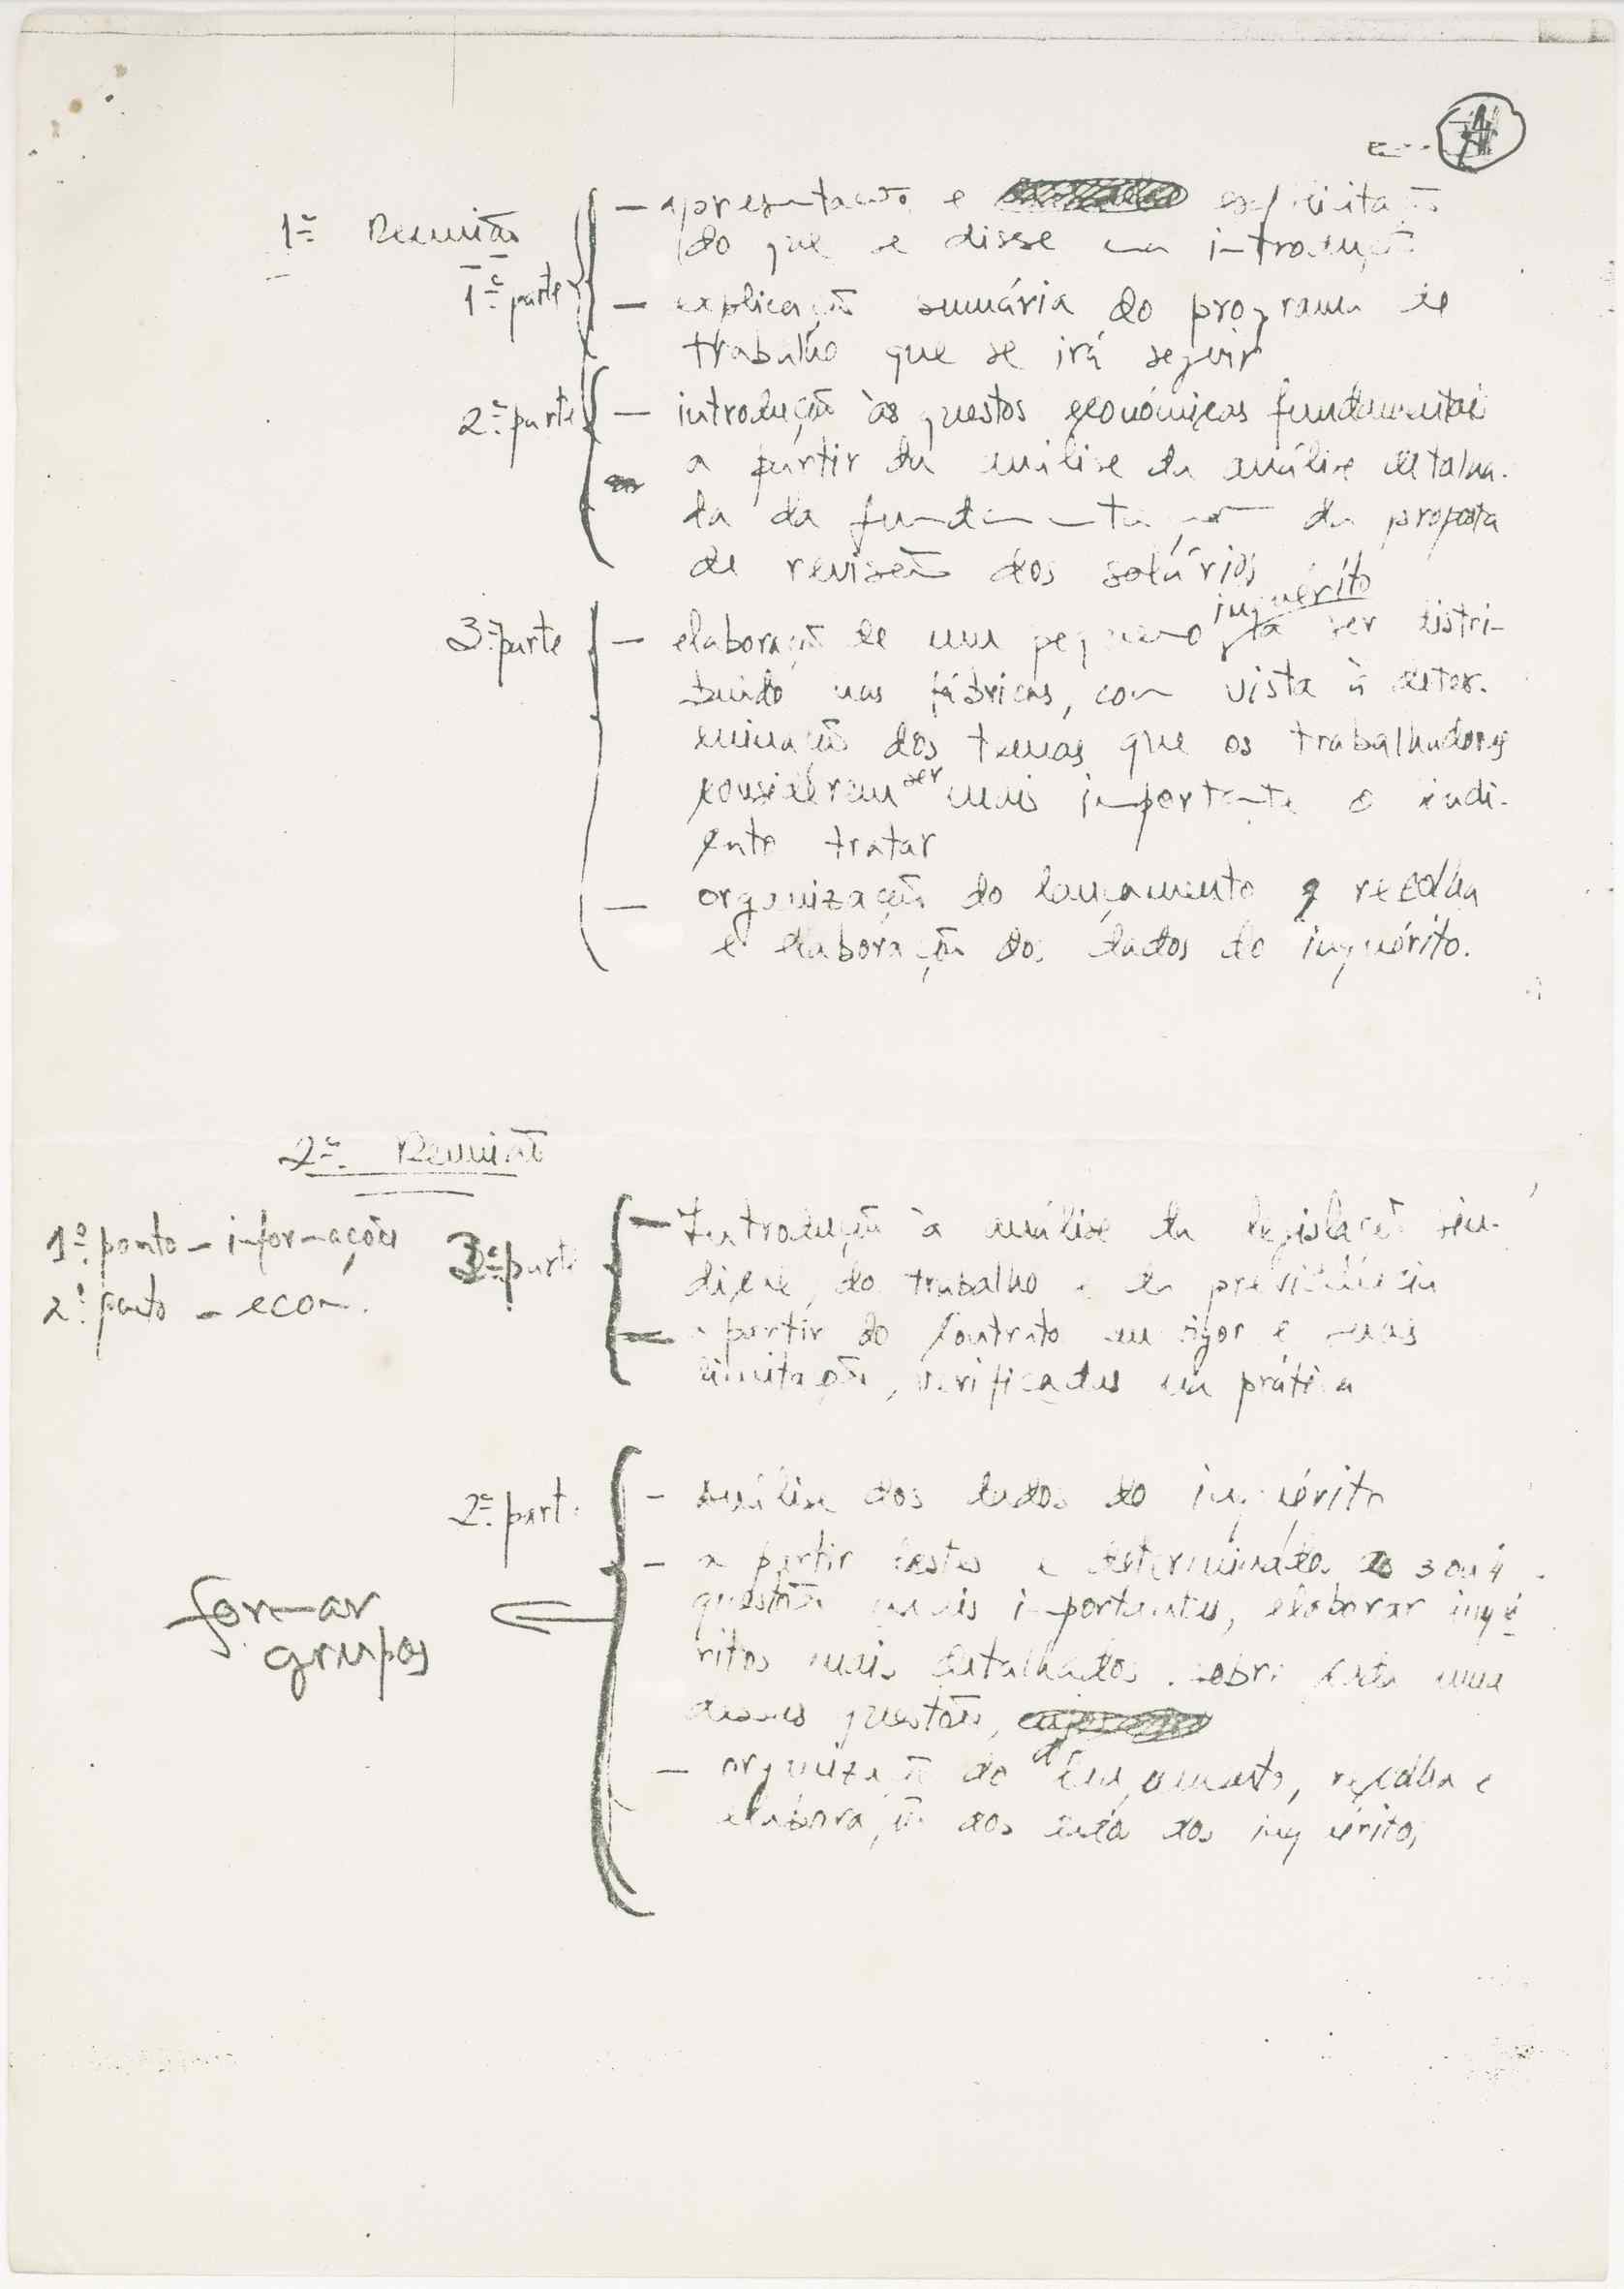 1ª Reunião
1ª parte
— apresentação e explicitação
do que se disse na introdução
— explicação sumária do programa de
trabalho que se irá seguir
2ª parte
— introdução às questos económicas fundamentais
a partir da análise da análise detalha-
da da fundamentação da proposta
de revisão dos salários
3ª parte
— elaboração de um pequeno inquérito a ser distri-
buido nas fábricas, com vista à deter-
minação dos temas que os trabalhadores
considerem ser mais importante o sindi-
cato tratar
— organização do lançamento recolha
e elaboração dos dados do inquérito.
2ª Reunião
1º ponto - informações
2º ponto - econ.
3ª parte
— Introdução à análise da legislação sin-
dical, do trabalho e da previdência
— a partir do contrato em vigor e suas
limitações, verificadas na prática
2ª parte
- análise dos dados do inquérito
- a partir destes e determinadas as 3 ou 4
questões mais importantes, elaborar inqué
ritos mais detalhados sobre cada uma
dessas questões,
- organização do lançamento, recolha e
elaboração dos dados dos inquéritos
formar
grupos